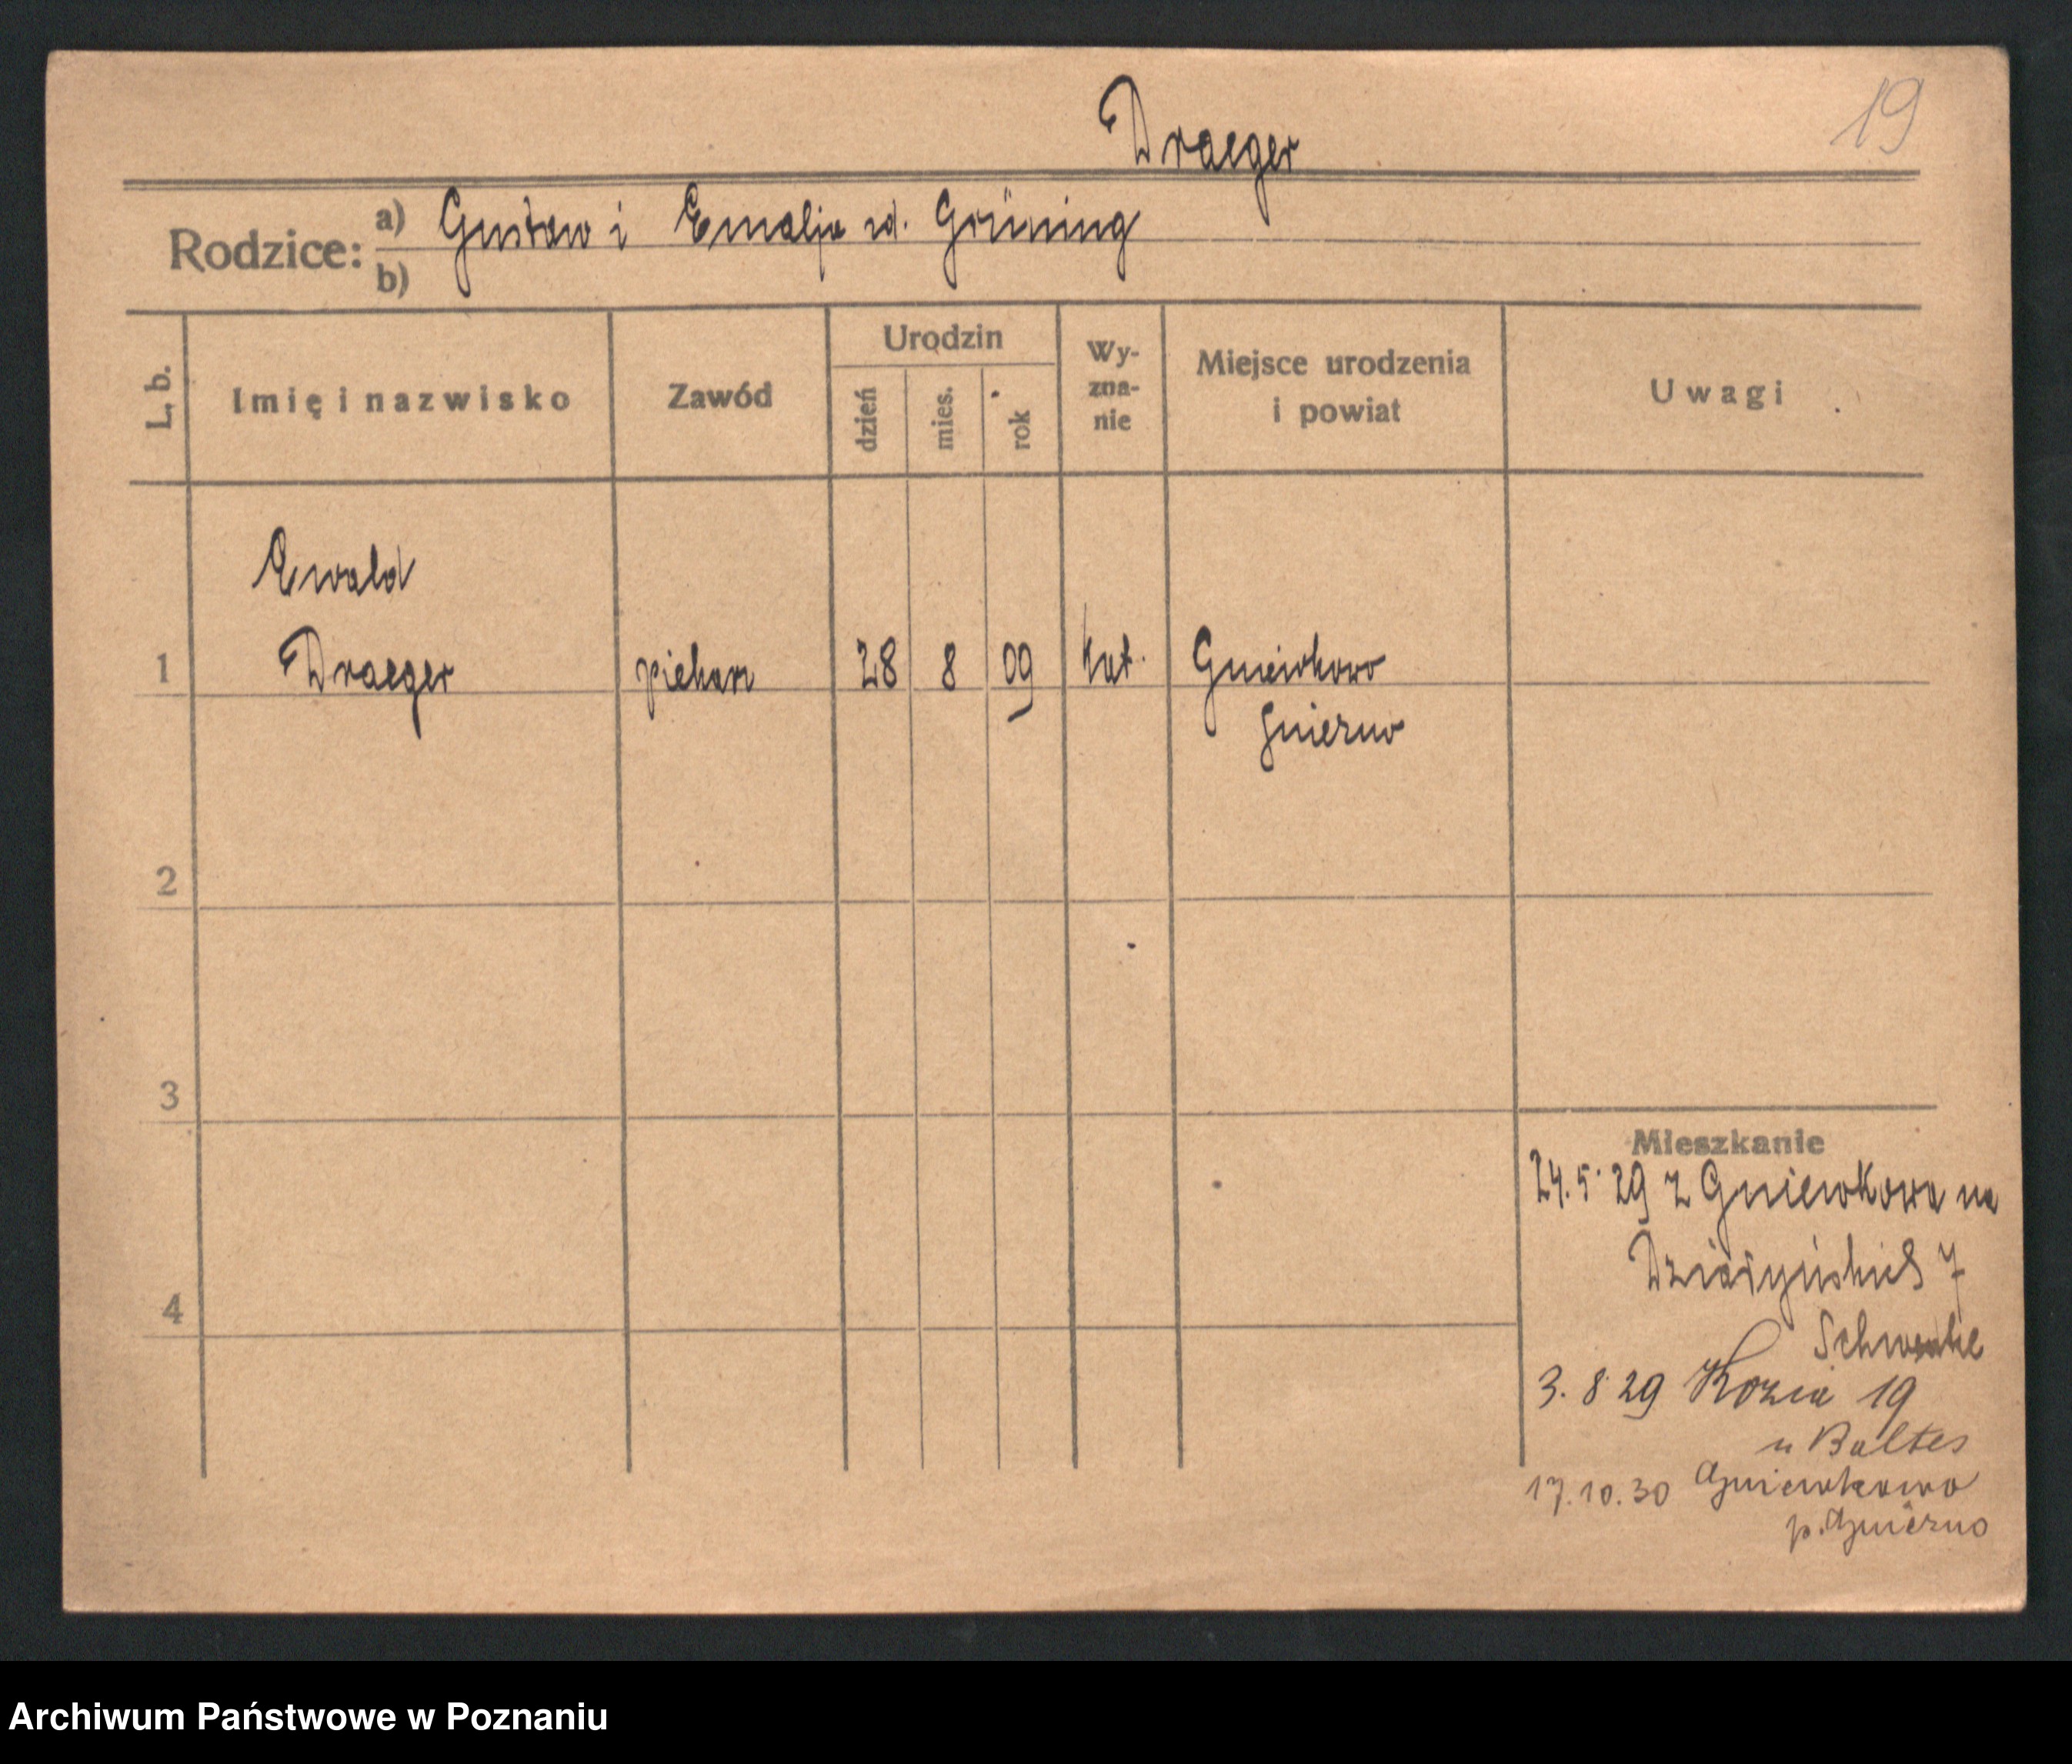 Draeger
19
Rodzice: a) Gustaw i Emalja rd. Grüning
b)
L. b. Imię i nazwisko Zawód Urodzin dzień mies. rok Wy-zna-nie Miejsce urodzenia i powiat Uwagi
Ewald
1 Draeger piekarz 28 8 09 kat. Gniewkowo
Gniezno
2
3
Mieszkanie
24.5.29 z Gniewkowa na
Działyńskich 7
4
3. 8 29 Kozia 19
u Baltes
17.10.30 Gniewkowo
p. Gniezno
Archiwum Państwowe w Poznaniu